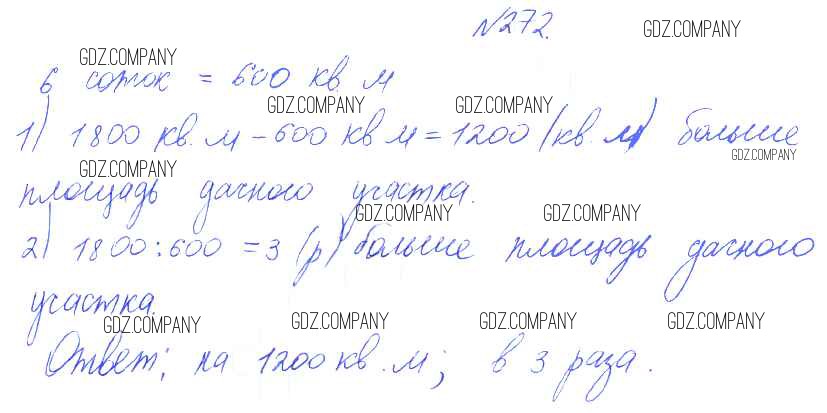 №272. GDZ.COMPANY
GDZ.COMPANY
6 соток = 600 кв. м
GDZ.COMPANY GDZ.COMPANY
1) 1800 кв. м - 600 кв м = 1200 (кв. м) больше
GDZ.COMPANY
GDZ.COMPANY
площадь дачного участка.
GDZ.COMPANY GDZ.COMPANY
2) 1800 : 600 = 3 (р) больше площадь дачного
участка.
GDZ.COMPANY GDZ.COMPANY GDZ.COMPANY GDZ.COMPANY
Ответ: на 1200 кв. м; в 3 раза.